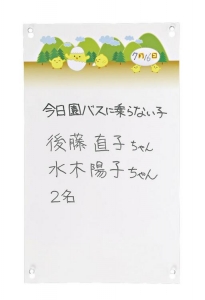 7月16日
今日園バスに乗らない子
後藤直子ちゃん
水木陽子ちゃん
2名